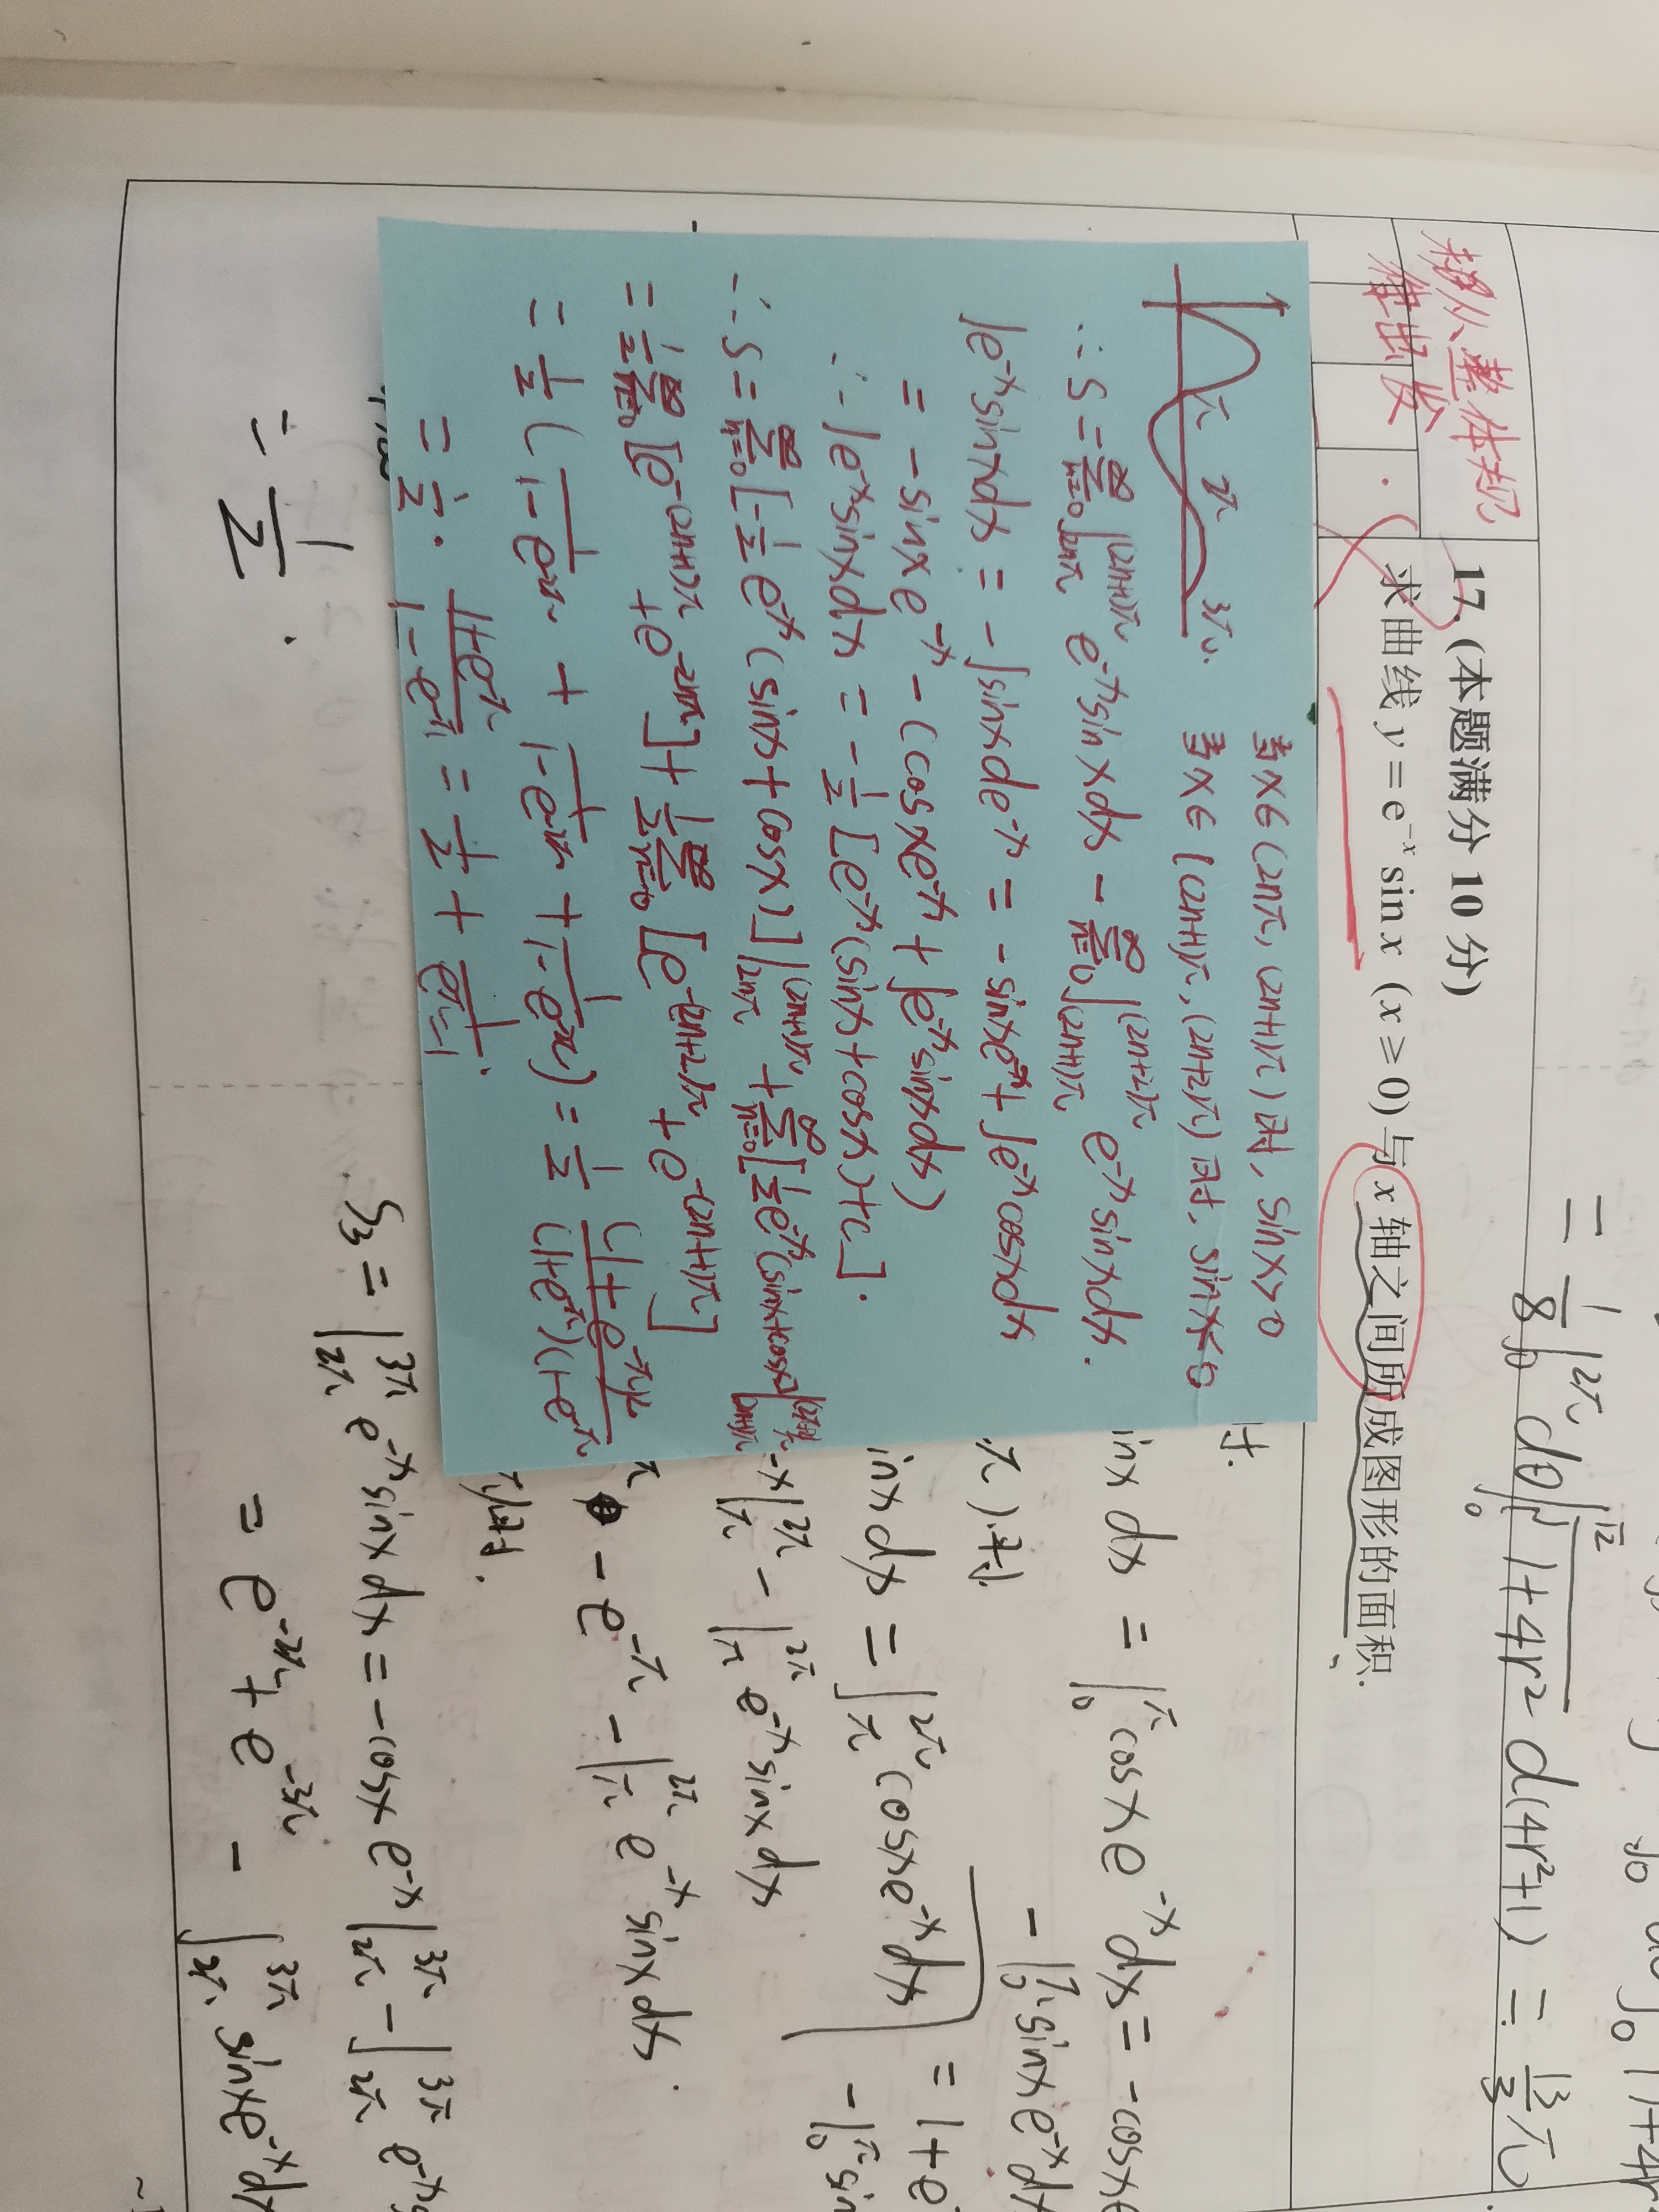 = 1/8 ∫₀^{2π} dθ ∫₀^{√2} √(1+4r²) d(4r²+1) = 13/3 π
想从整体规
律出发
17. (本题满分 10 分)
求曲线 y = e⁻ˣ sin x (x ≥ 0) 与 x 轴之间所成图形的面积.
π 2π 3π.
当x∈(2nπ, (2n+1)π)时, sinx>0
当x∈((2n+1)π, (2n+2)π)时, sinx<0
∴ S = ∑_{n=0}^{∞} ∫_{2nπ}^{(2n+1)π} e⁻ˣ sinx dx − ∑_{n=0}^{∞} ∫_{(2n+1)π}^{(2n+2)π} e⁻ˣ sinx dx.
∫e⁻ˣ sinx dx = −∫sinx de⁻ˣ = −sinx e⁻ˣ + ∫e⁻ˣ cosx dx
= −sinx e⁻ˣ − (cosx e⁻ˣ + ∫e⁻ˣ sinx dx)
∴ ∫e⁻ˣ sinx dx = −1/2 [e⁻ˣ(sinx + cosx) + c].
∴ S = ∑_{n=0}^{∞} [−1/2 e⁻ˣ (sinx + cosx)] |_{2nπ}^{(2n+1)π} + ∑_{n=0}^{∞} [1/2 e⁻ˣ (sinx + cosx)] |_{(2n+1)π}^{(2n+2)π}
= 1/2 ∑_{n=0}^{∞} [e^{−(2n+1)π} + e^{−2nπ}] + 1/2 ∑_{n=0}^{∞} [e^{−(2n+2)π} + e^{−(2n+1)π}]
= 1/2 · (1+e^{−π})/(1−e^{−π}) = 1/2 + 1/(e^π−1).
inx dx = ∫₀^π cosx e⁻ˣ dx = −cosx
− ∫₀^π sinx e⁻ˣ d
π)时.
inx dx = ∫_π^{2π} cosx e⁻ˣ dx = 1+e
− ∫_π^{2π} e⁻ˣ sinx dx
− e^{−π} − ∫_π^{2π} e⁻ˣ sinx dx.
S₃ = ∫_{2π}^{3π} e⁻ˣ sinx dx = −cosx e⁻ˣ |_{2π}^{3π} − ∫_{2π}^{3π} e⁻ˣ
= e^{−2π} + e^{−3π} − ∫_{2π}^{3π} sinx e⁻ˣ d
= 1/2.